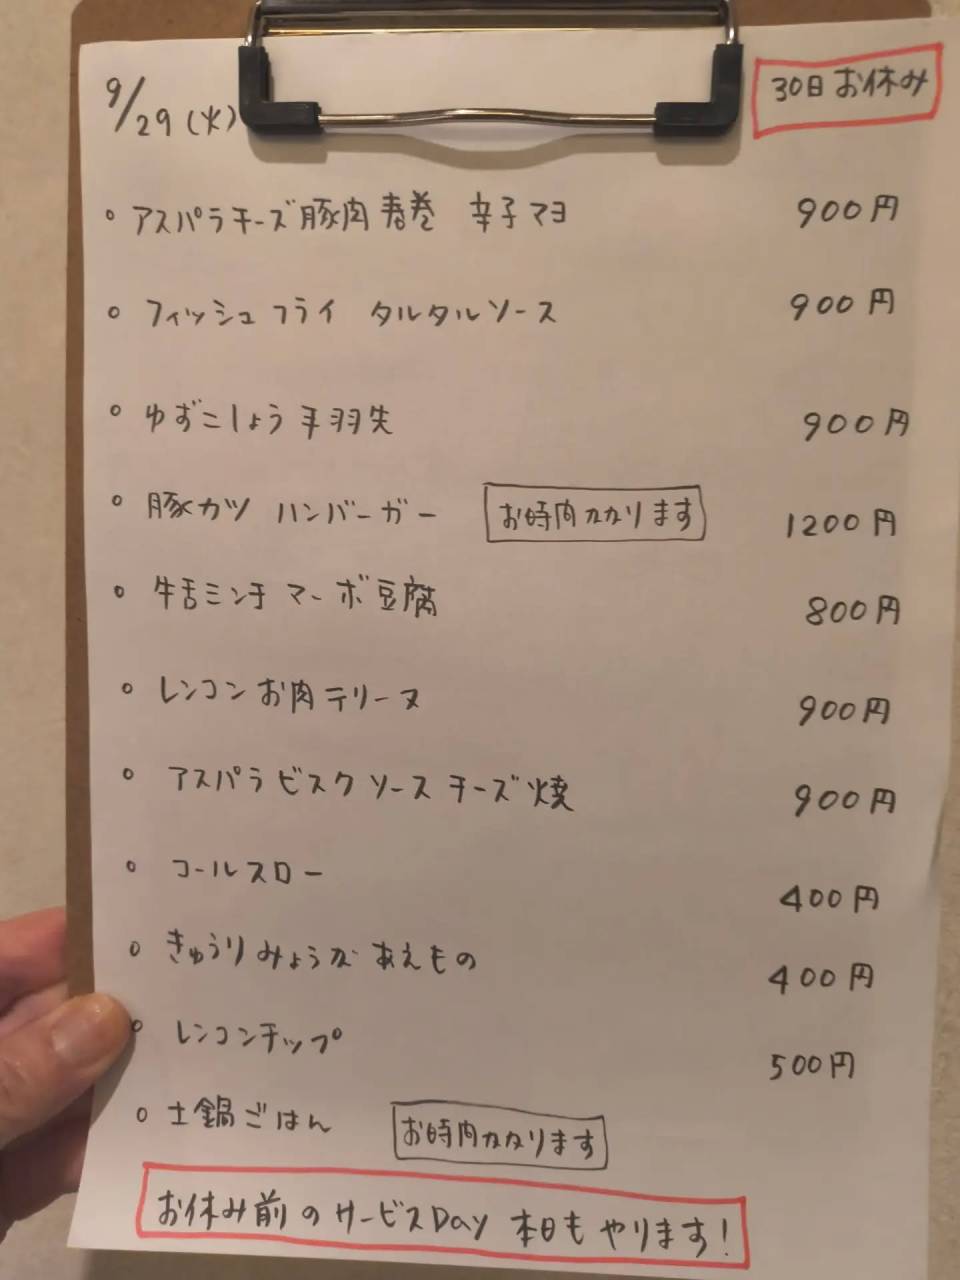 9/29(火)
30日お休み
アスパラチーズ豚肉春巻 辛子マヨ 900円
フィッシュフライ タルタルソース 900円
ゆずこしょう手羽先 900円
豚カツ ハンバーガー お時間かかります 1200円
牛舌ミンチ マーボ豆腐 800円
レンコンお肉テリーヌ 900円
アスパラビスクソースチーズ焼 900円
コールスロー 400円
きゅうりみょうがあえもの 400円
レンコンチップ 500円
土鍋ごはん お時間かかります
お休み前のサービスDay 本日もやります!